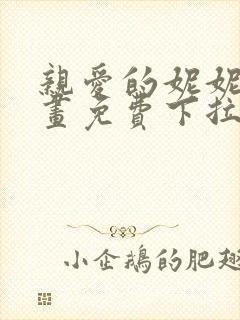 親愛的妮妮
畫免費下拉
小企鵝的肥翅